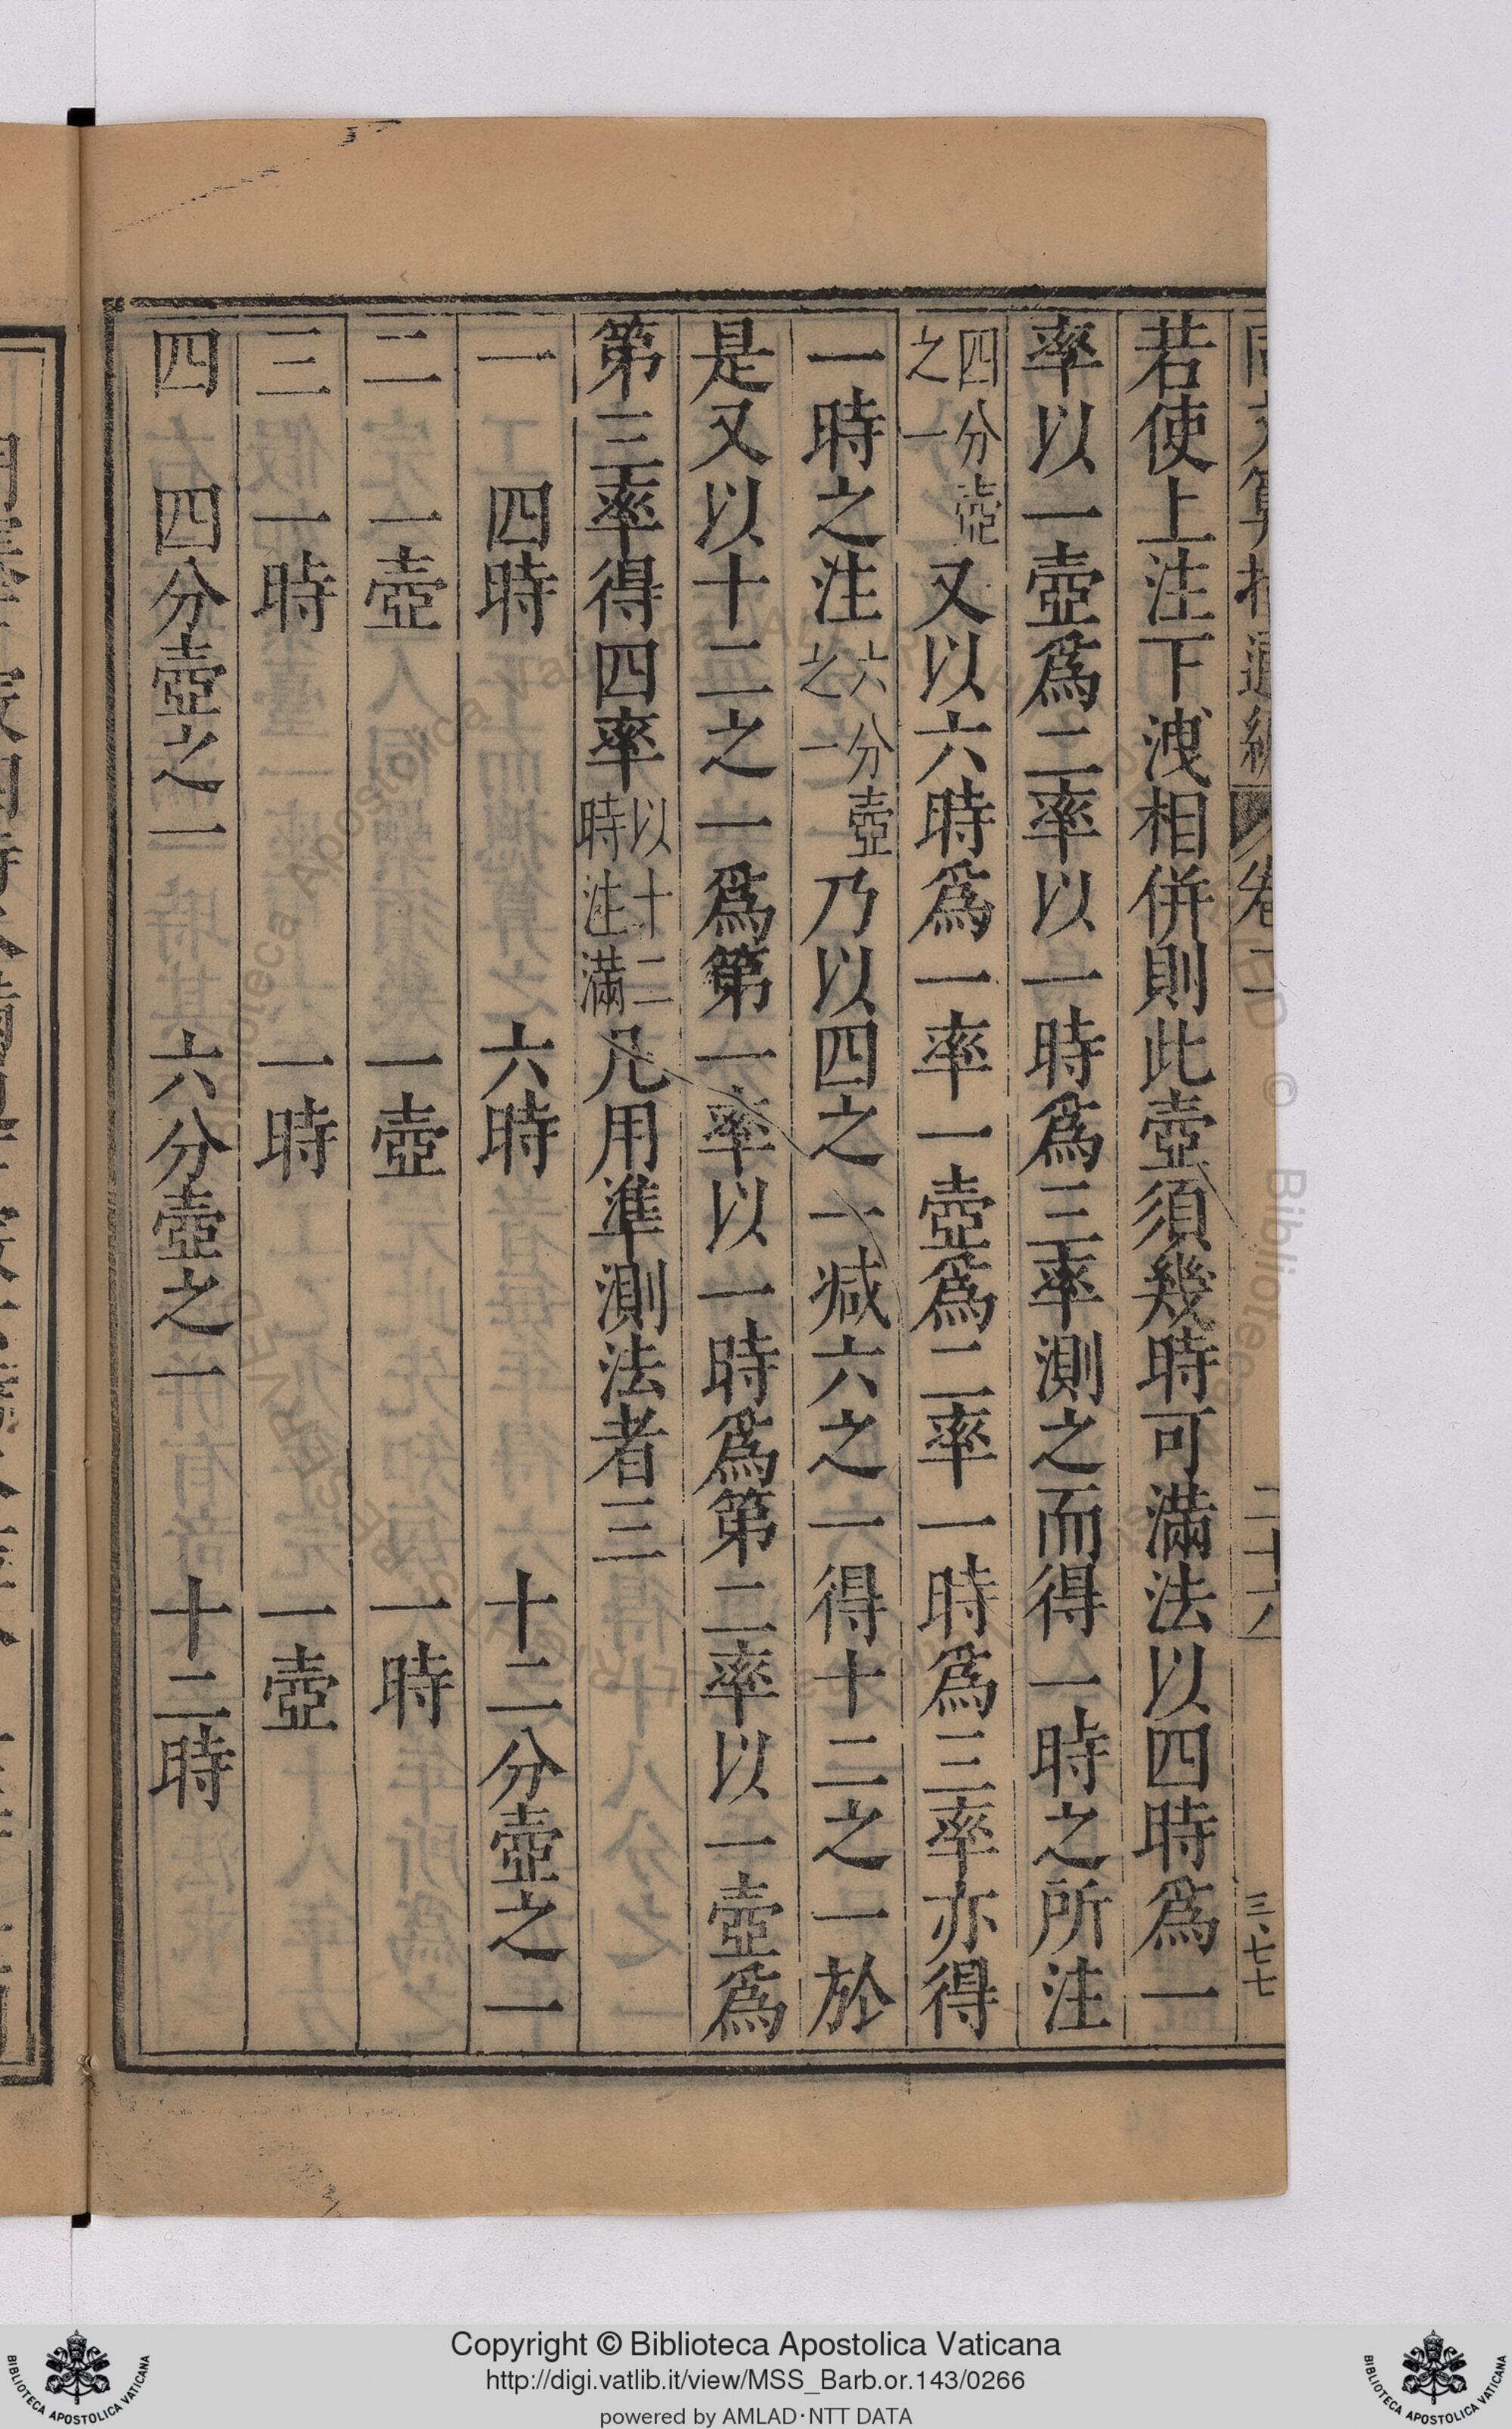 若使上注下洩相併則此壺須幾時可滿法以四時爲一
率以一壺爲二率以一時爲三率測之而得一時之所注
四分壺之一又以六時爲一率一壺爲二率一時爲三率亦得
一時之注六分壺之一乃以四之一減六之一得十二之一於
是又以十二之一爲第一率以一時爲第二率以一壺爲
第三率得四率以十二時注滿凡用準測法者三
一 四時 六時 十二分壺之一
二 一壺 一壺 一時
三 一時 一時 一壺
四 四分壺之一 六分壺之一 十二時
三、七七
Copyright © Biblioteca Apostolica Vaticana
http://digi.vatlib.it/view/MSS_Barb.or.143/0266
powered by AMLAD·NTT DATA
BIBLIOTECA APOSTOLICA VATICANA
BIBLIOTECA APOSTOLICA VATICANA